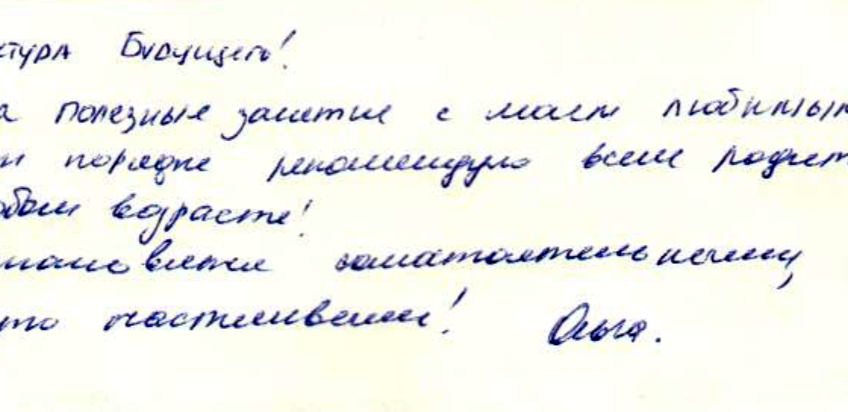 ктура Будущего!
а полезные занятие с моем любимым
м порядке рекомендую всем родит
юбом возрасте!
становятся самостоятельными,
то счастливыми! Ольга.